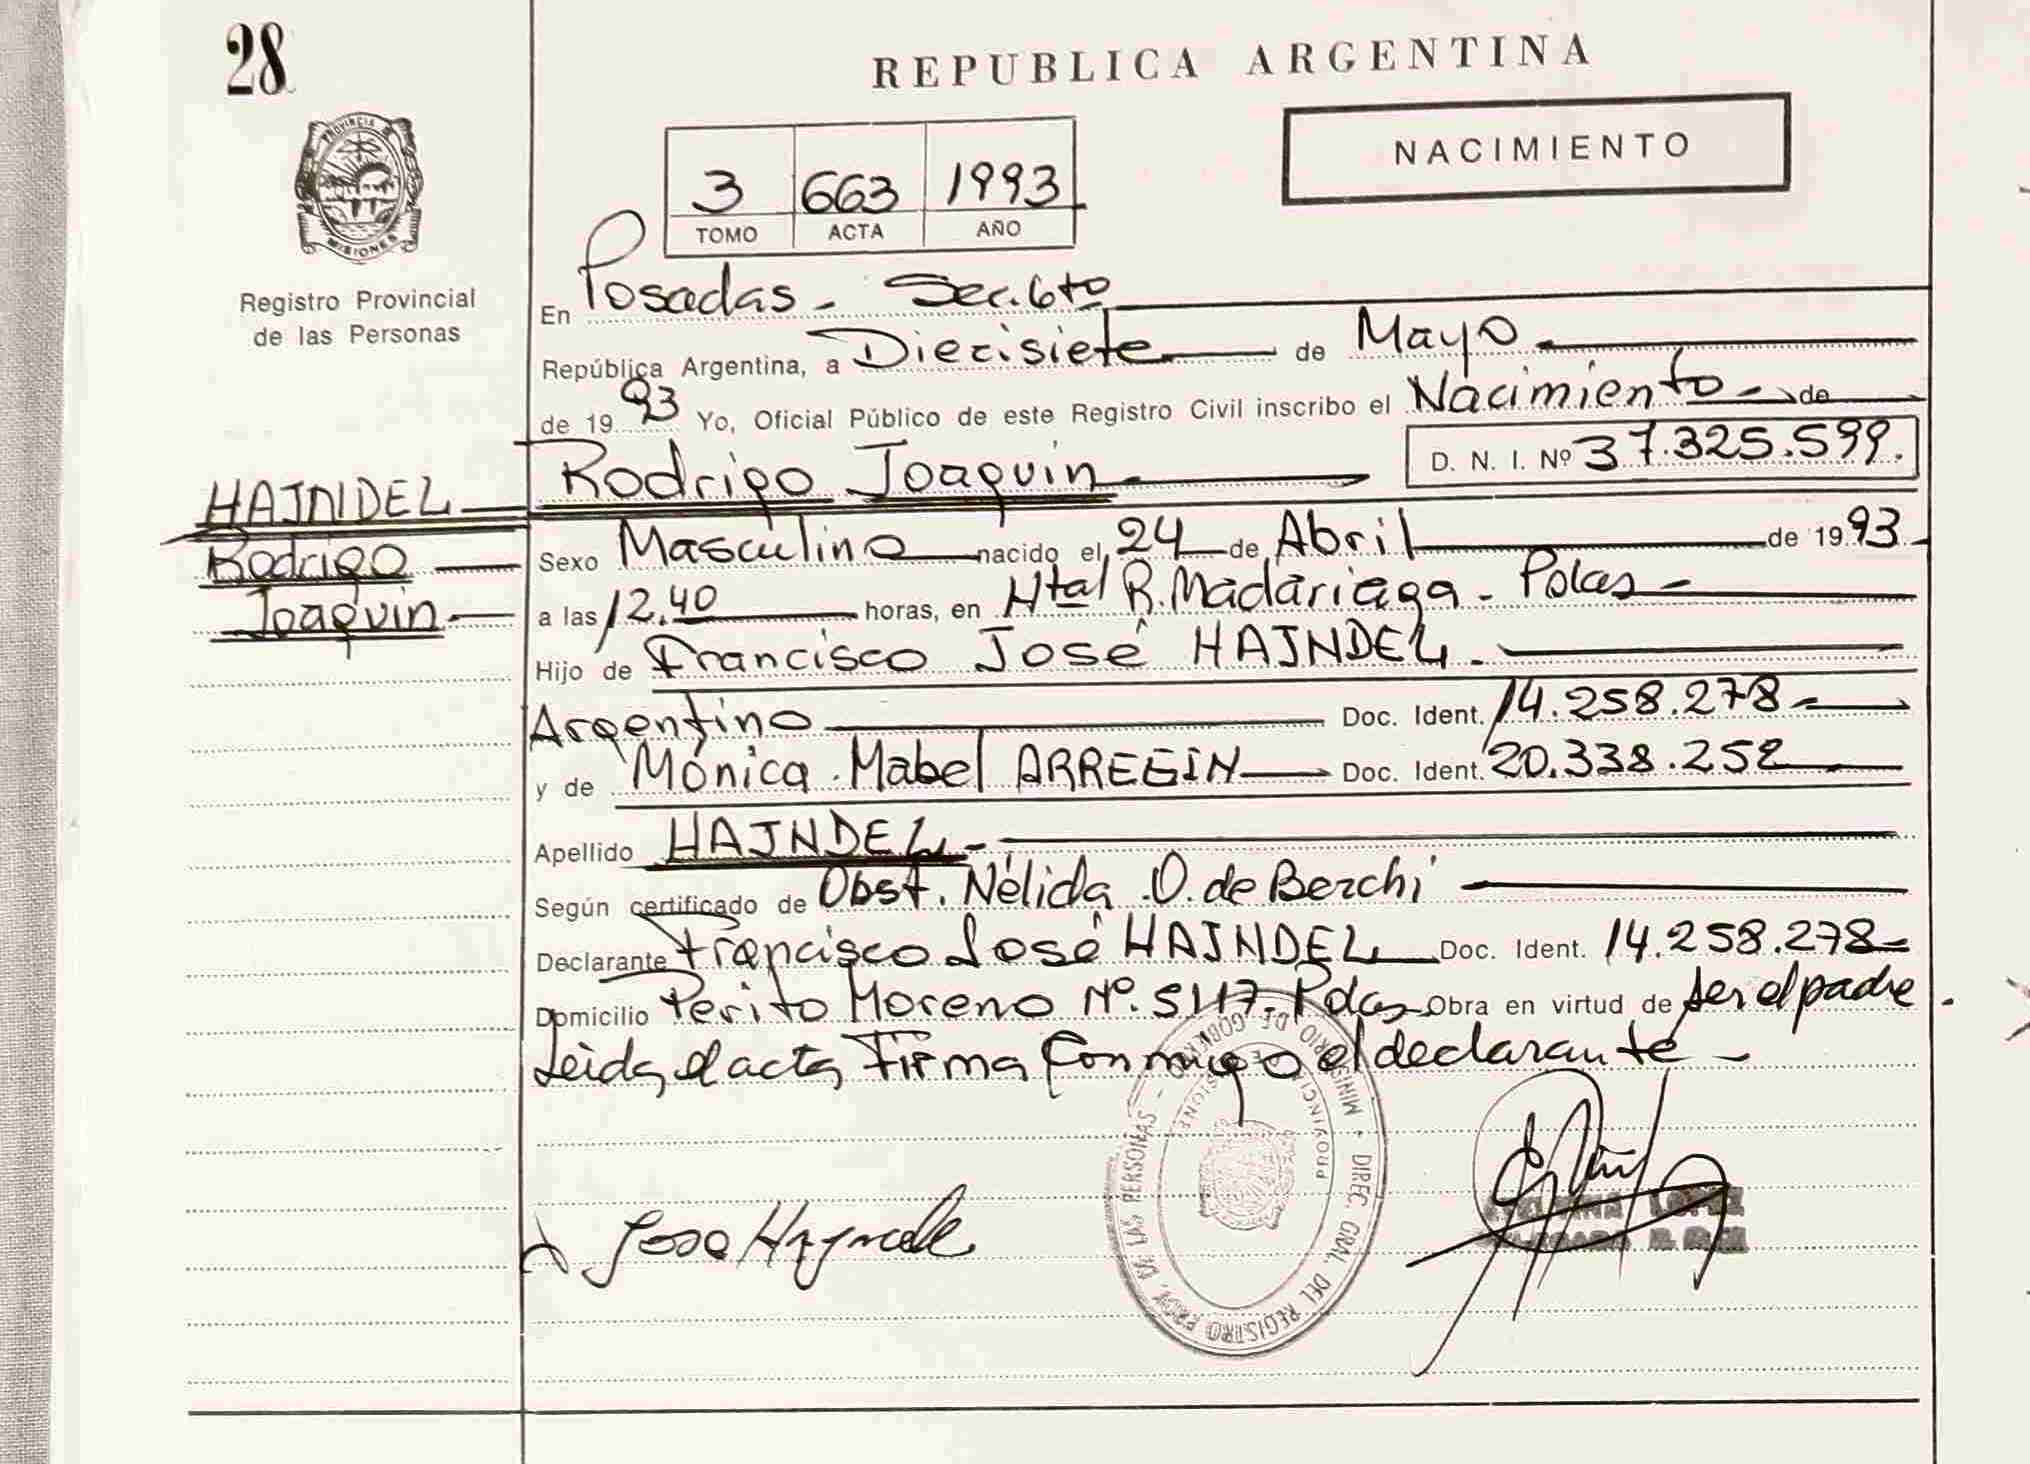 28
REPUBLICA ARGENTINA
NACIMIENTO
PROVINCIA DE
MISIONES
Registro Provincial
de las Personas
3 663 1993
TOMO ACTA AÑO
En Posadas - Sec. 6to
República Argentina, a Diecisiete de Mayo
de 1993 Yo, Oficial Público de este Registro Civil inscribo el Nacimiento - de
Rodrigo Joaquín D. N. I. Nº 37.325.599.
HAJNDEL
Rodrigo
Joaquín
Sexo Masculino nacido el 24 de Abril de 1993
a las 12.40 horas, en Htal R. Madariaga - Pdas -
Hijo de Francisco José HAJNDEL.
Argentino Doc. Ident. 14.258.278
y de Mónica Mabel ARREGIN Doc. Ident. 20.338.252
Apellido HAJNDEL -
Según certificado de Obst. Nélida O. de Berchi
Declarante Francisco José HAJNDEL Doc. Ident. 14.258.278
Domicilio Perito Moreno Nº 5117 - Pdas Obra en virtud de ser el padre.
Leida el acta Firma Conmigo el declarante -
MINISTERIO DE GOBIERNO - DIREC. GRAL. DEL REGISTRO PROV. DE LAS PERSONAS
PROVINCIA DE MISIONES
Jose
LOPEZ